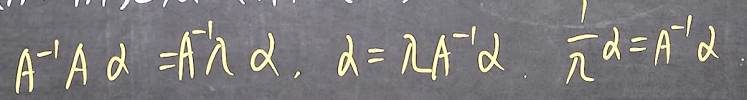 A⁻¹Aα = A⁻¹λα. α = λA⁻¹α. 1/λ α = A⁻¹α.